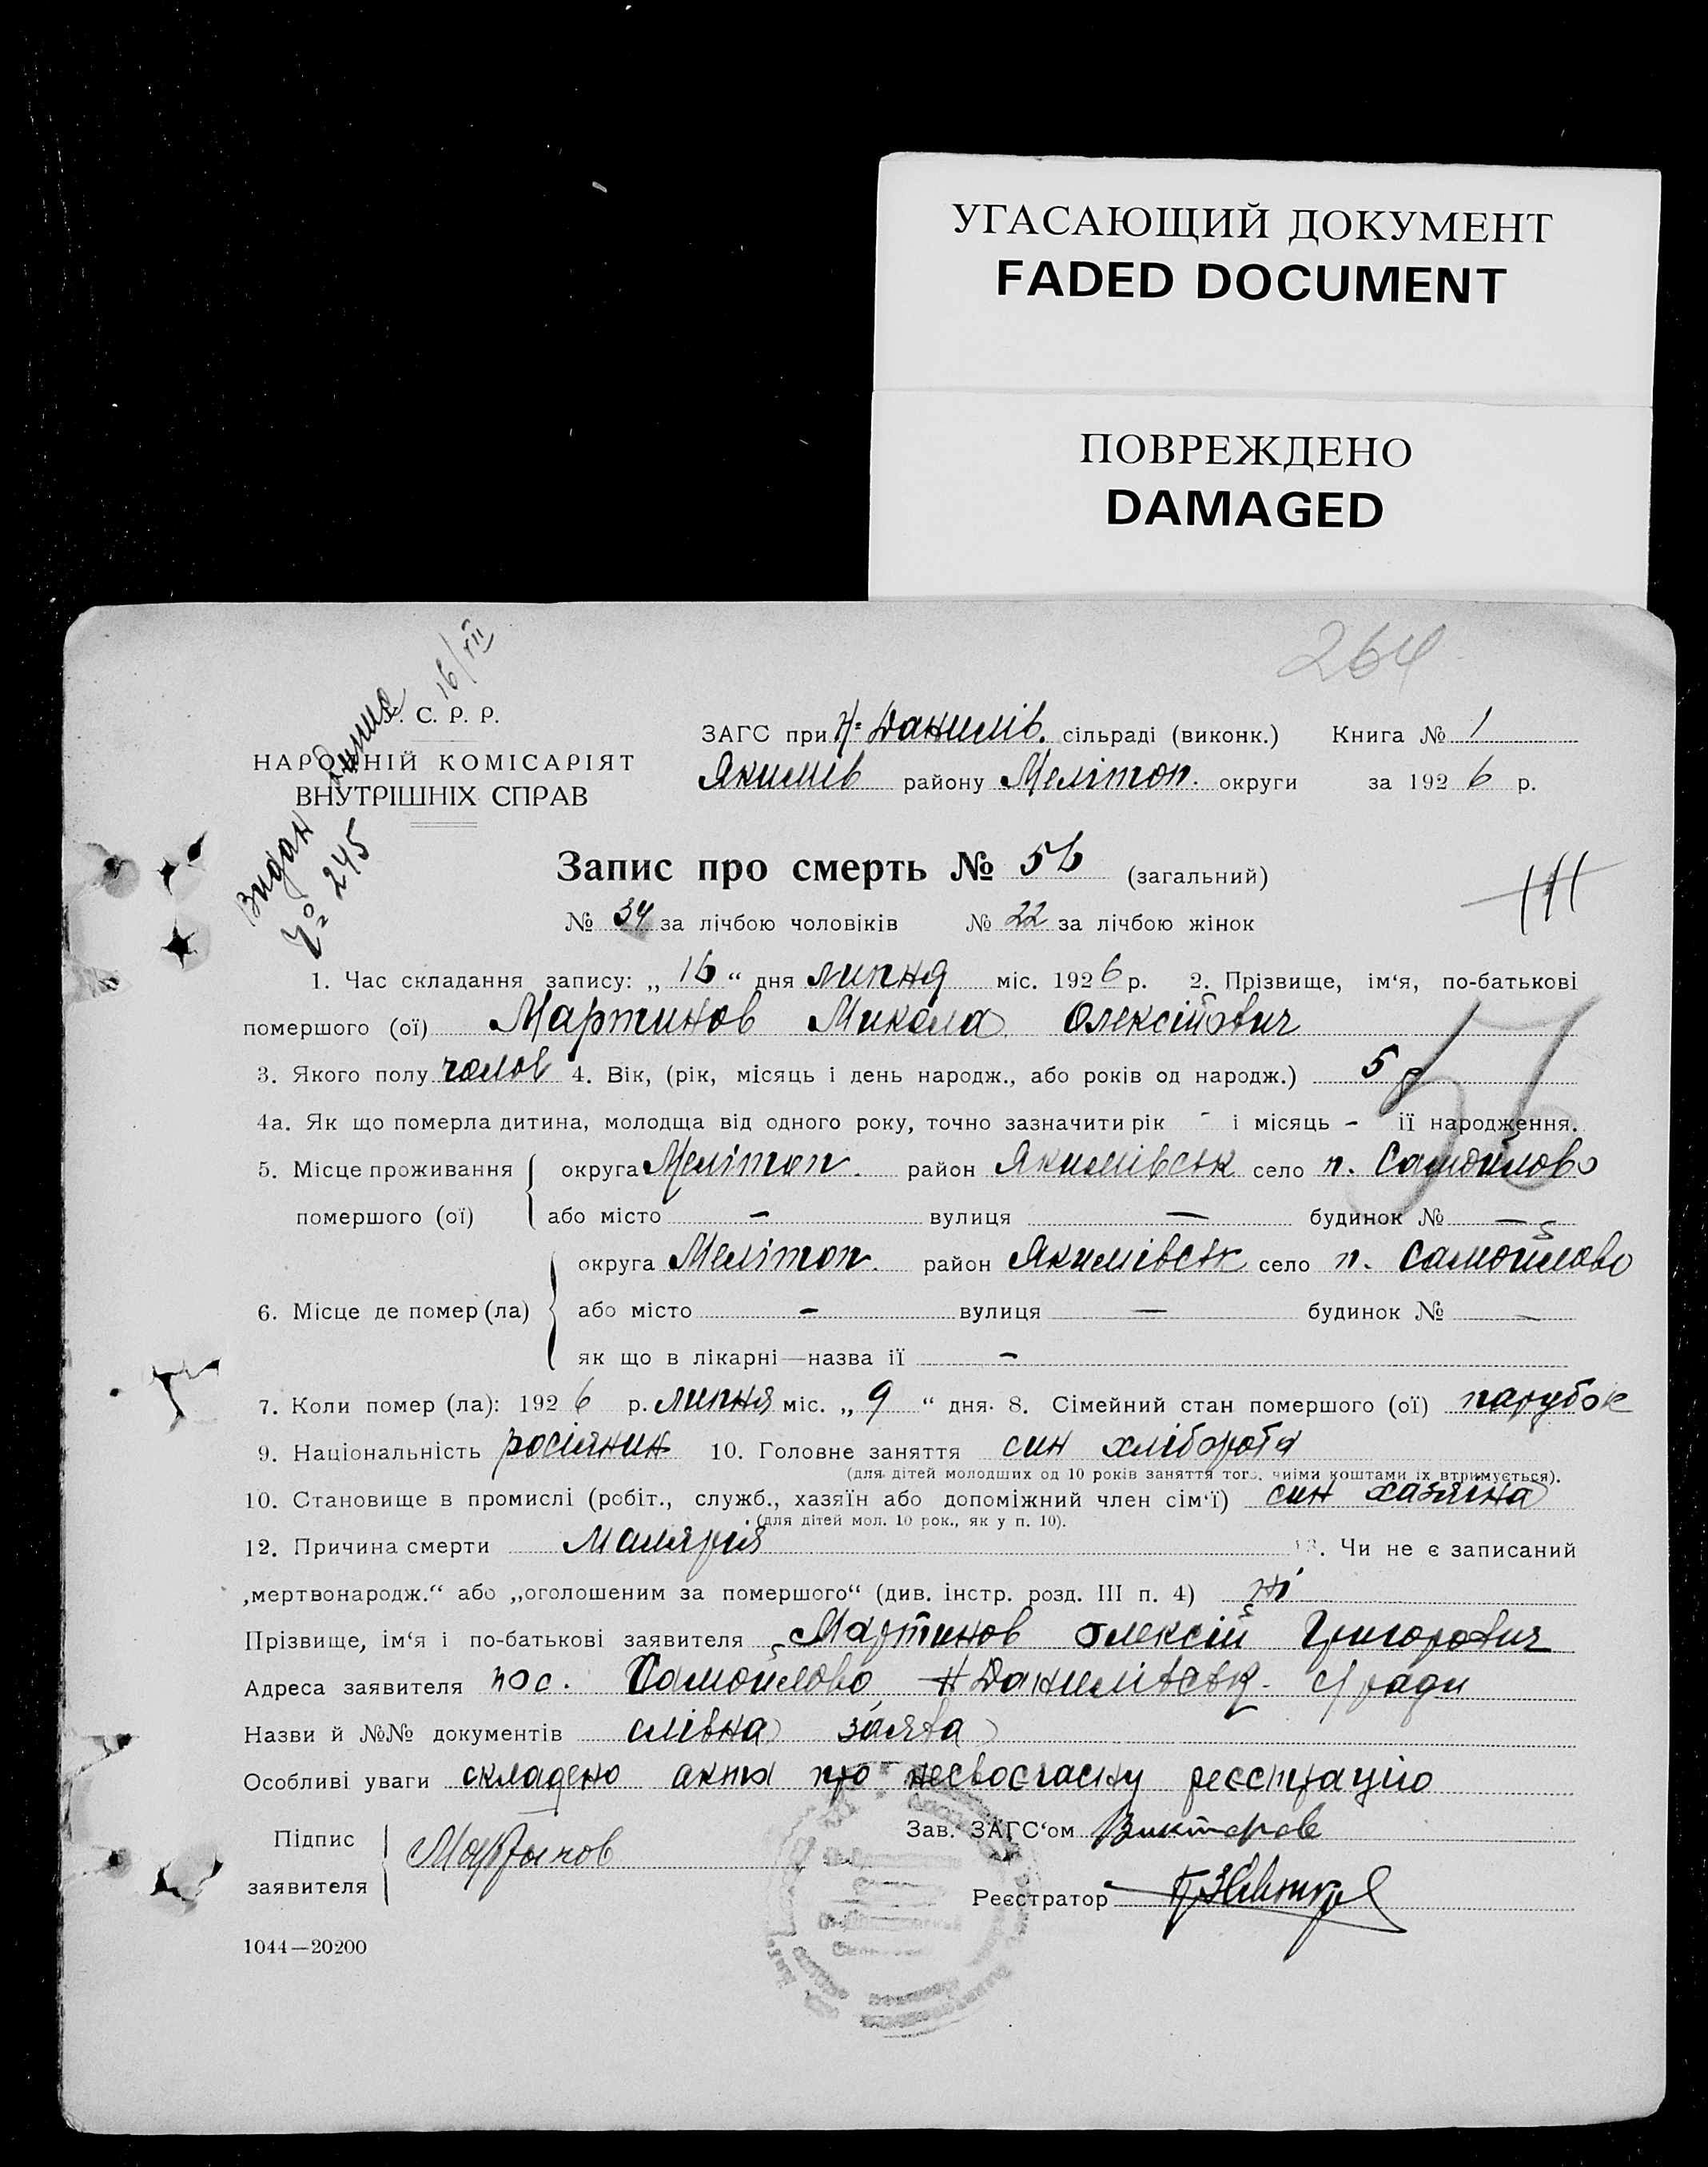 УГАСАЮЩИЙ ДОКУМЕНТ
FADED DOCUMENT
ПОВРЕЖДЕНО
DAMAGED
264
16/VII
С. Р. Р.
НАРОДНІЙ КОМІСАРІЯТ
ВНУТРІШНІХ СПРАВ
Видан
№ 245
ЗАГС при Н-Данилів. сільраді (виконк.) Книга № 1
Якимів району Мелітоп. округи за 1926 р.
Запис про смерть № 56 (загальний)
№ 34 за лічбою чоловіків № 22 за лічбою жінок
1. Час складання запису: „ 16 “ дня липня міс. 1926 р. 2. Прізвище, ім‘я, по-батькові
помершого (ої) Мартинов Микола Олексійович
3. Якого полу чолов 4. Вік, (рік, місяць і день народж., або років од народж.) 5 р
4а. Як що померла дитина, молодща від одного року, точно зазначити рік - і місяць - її народження.
5. Місце проживання округа Мелітоп. район Якимівськ село п. Самойлово
помершого (ої) або місто — вулиця — будинок № —
округа Мелітоп. район Якимівськ село п. Самойлово
6. Місце де помер (ла) або місто — вулиця — будинок № —
як що в лікарні—назва її —
7. Коли помер (ла): 1926 р. липня міс. „ 9 “ дня. 8. Сімейний стан помершого (ої) парубок
9. Національність росіянин 10. Головне заняття син хлібороба
(для дітей молодших од 10 років заняття того, чиїми коштами їх втримується).
10. Становище в промислі (робіт., служб., хазяїн або допоміжний член сім‘ї) син хазяїна
(для дітей мол. 10 рок., як у п. 10).
12. Причина смерти Малярія 13. Чи не є записаний
„мертвонародж.“ або „оголошеним за помершого“ (див. інстр. розд. III п. 4) ні
Прізвище, ім‘я і по-батькові заявителя Мартинов Олексій Григорович
Адреса заявителя пос. Самойлово Н Данилівськ. с/ради
Назви й №№ документів слівна заява
Особливі уваги складено акта про несвоєчасну реєстрацію
Підпис
заявителя Мартынов
Зав. ЗАГС‘ом
Реєстратор
1044—20200